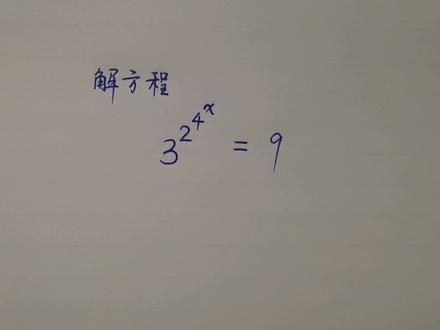 解方程
3^{2^{4^{x}}} = 9